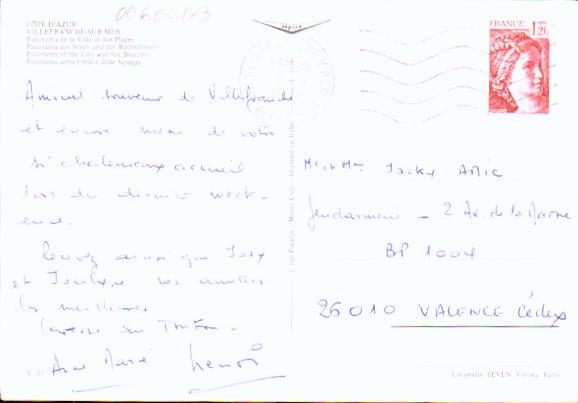 00600163
CÔTE D'AZUR
VILLEFRANCHE-SUR-MER
Panorama de la Ville et des Plages
Panorama der Stadt und der Badestrande
Panorama of the City and the Beaches
Panorama della Città e delle Spiagge
FRANCE 1,20
Amical souvenir de Villefranche
et encore merci de votre
si chaleureux accueil
lors du dernier week-
end.
Recevez ainsi que
et nos amitiés
les meilleures
Anne Marie Henri
2, rue Paradis - Monte Carlo Imprimé en Italie
Mr et Mme Jacky AMIC
Gendarmerie - 2 Av. de la Marne
BP 1004
26010 VALENCE Cédex
Litografia SEVEN Verona Italia